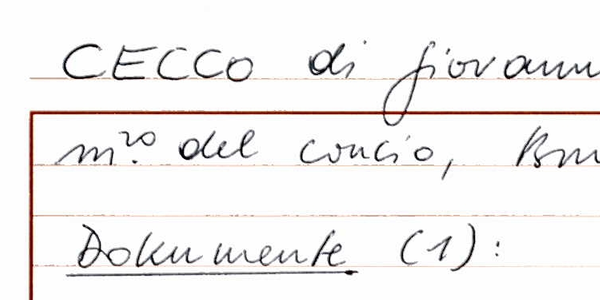 CECCO di giovann
m.ro del concio,
Dokumente (1):